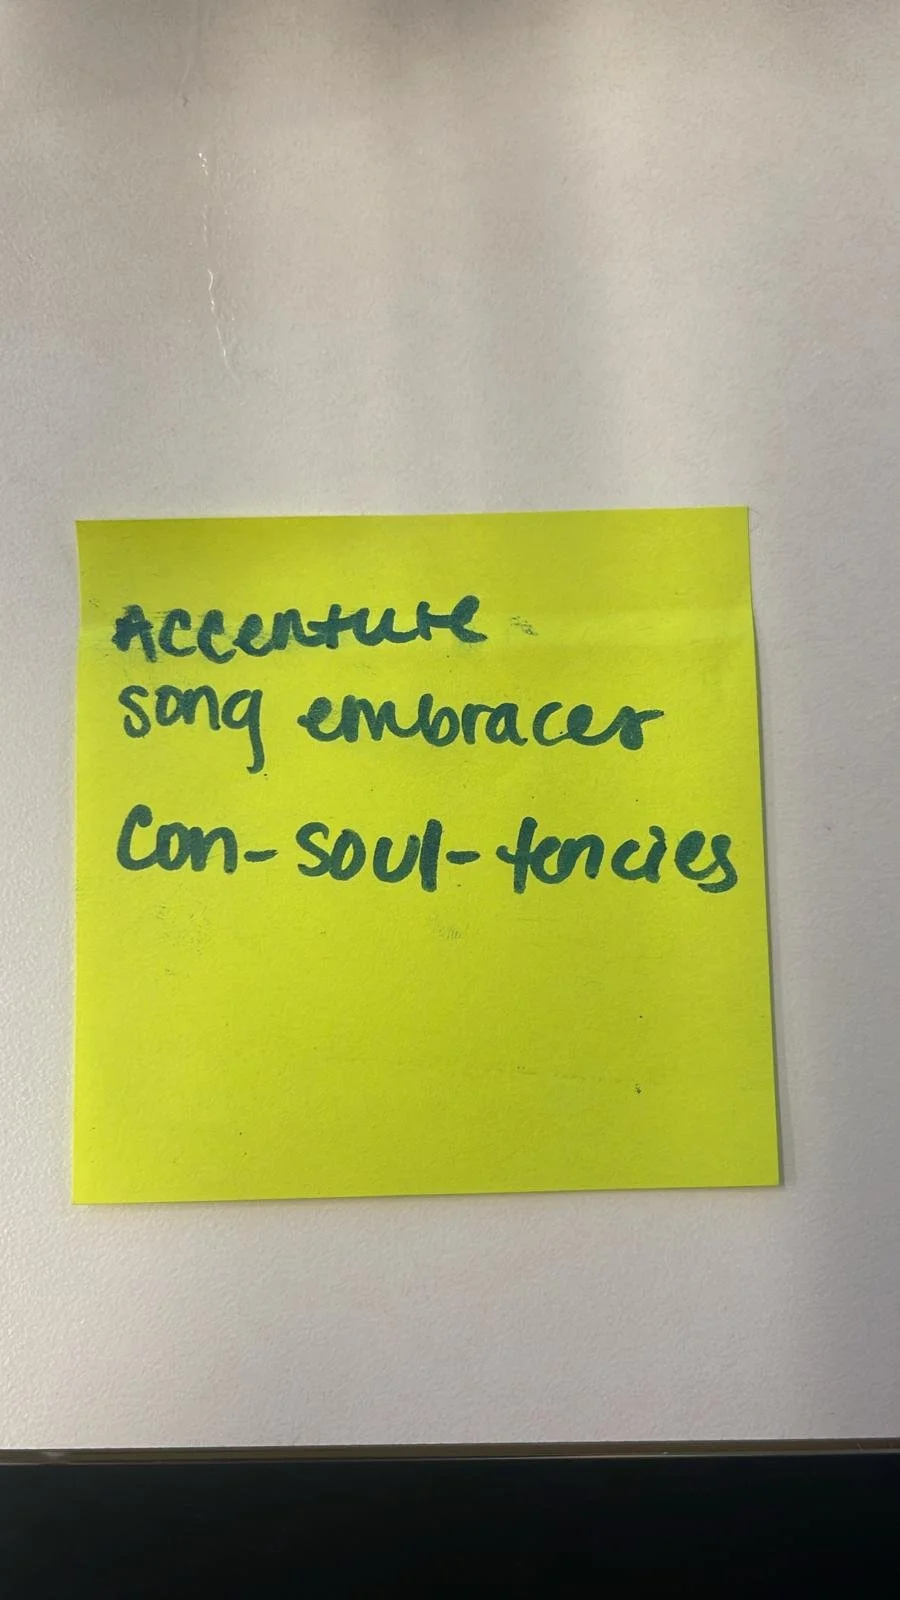 Accenture
song embraces
Con-soul-tencies